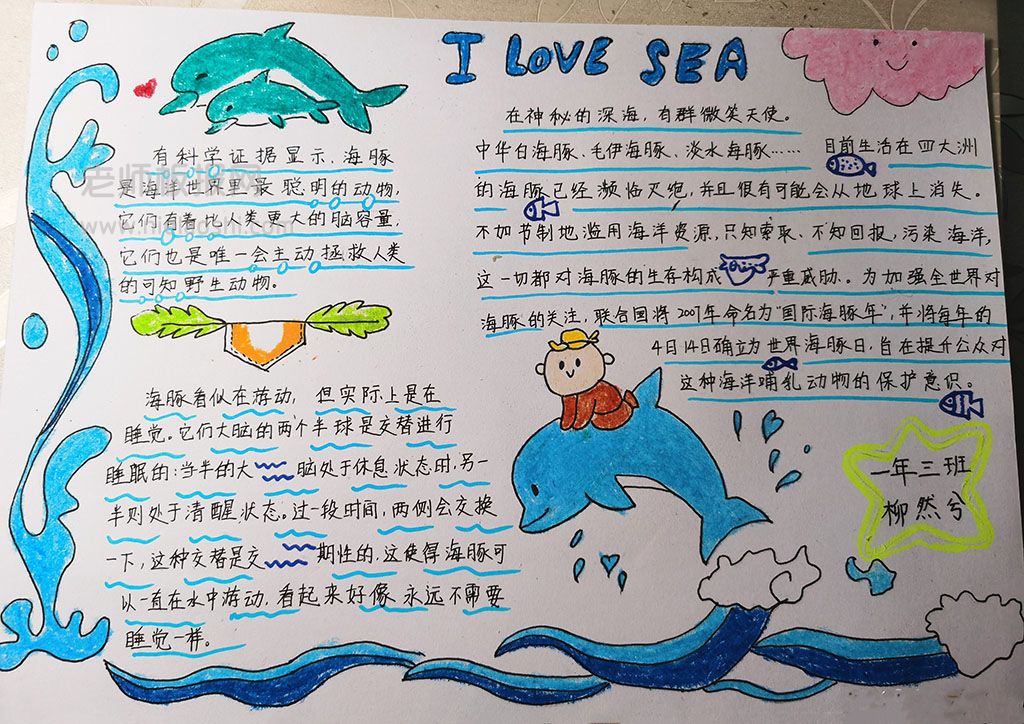 I LOVE SEA
有科学证据显示、海豚
是海洋世界里最聪明的动物,
它们有着比人类更大的脑容量,
它们也是唯一会主动拯救人类
的可知野生动物。
海豚看似在游动, 但实际上是在
睡觉。它们大脑的两个半球是交替进行
睡眠的:当半的大脑处于休息状态时,另一
半则处于清醒状态。过一段时间,两侧会交换
一下,这种交替是交期性的,这使得海豚可
以一直在水中游动,看起来好像永远不需要
睡觉一样。
在神秘的深海,有群微笑天使。
中华白海豚、毛伊海豚、淡水海豚…… 目前生活在四大洲
的海豚已经濒临灭绝,并且很有可能会从地球上消失。
不加节制地滥用海洋资源,只知索取、不知回报,污染海洋,
这一切都对海豚的生存构成严重威胁。为加强全世界对
海豚的关注,联合国将2007年命名为“国际海豚年”,并将每年的
4月14日确立为世界海豚日,旨在提升公众对
这种海洋哺乳动物的保护意识。
一年三班
柳然兮